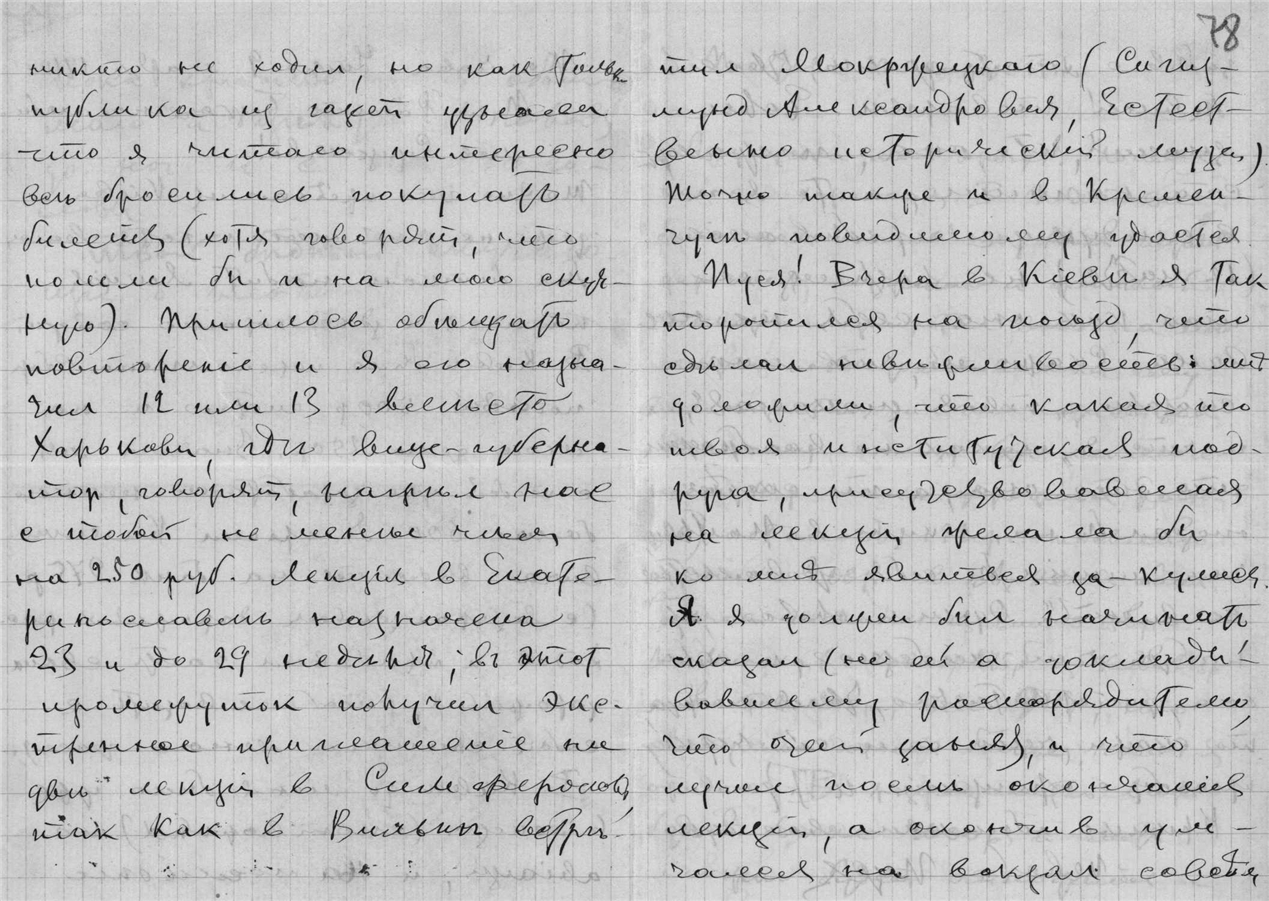 никто не ходил, но как только
публика из газет узнала
что я читаю интересно
всѣ бросились покупать
билеты (хотя говорят, что
пошли бы и на мою скуч-
ную). Пришлось обѣщать
повторенiе и я его назна-
чил 12 или 13 вмѣсто
Харькова, гдѣ вице-губерна-
тор, говорят, нагрѣл нас
с тобой не менѣе чѣм
на 250 руб. Лекцiя в Екате-
ринославлѣ назначена
23 и до 29 недѣля; въ этот
промежуток получил экс-
тренное приглашенiе на
двѣ лекцiи в Симферополь,
так как в Вильнѣ встрѣ-
78
тил Мокржецкаго (Сигиз-
мунд Александрович, Естест-
венно исторический музей)
Точно также и в Кремен-
чугѣ повидимому удастся
Пуся! Вчера в Кiевѣ я так
торопился на поѣзд, что
сдѣлал невѣжливость: мнѣ
доложили, что какая то
твоя институтская под-
руга, присутствовавшая
на лекцiи желала бы
ко мнѣ явиться за-кулисы.
А я должен был начинать
сказал (не ей а докладѣ-
вавшему распорядителю,
что очень занят, и что
лучше послѣ окончанiя
лекцiи, а окончив ум-
чался на вокзал совсѣм